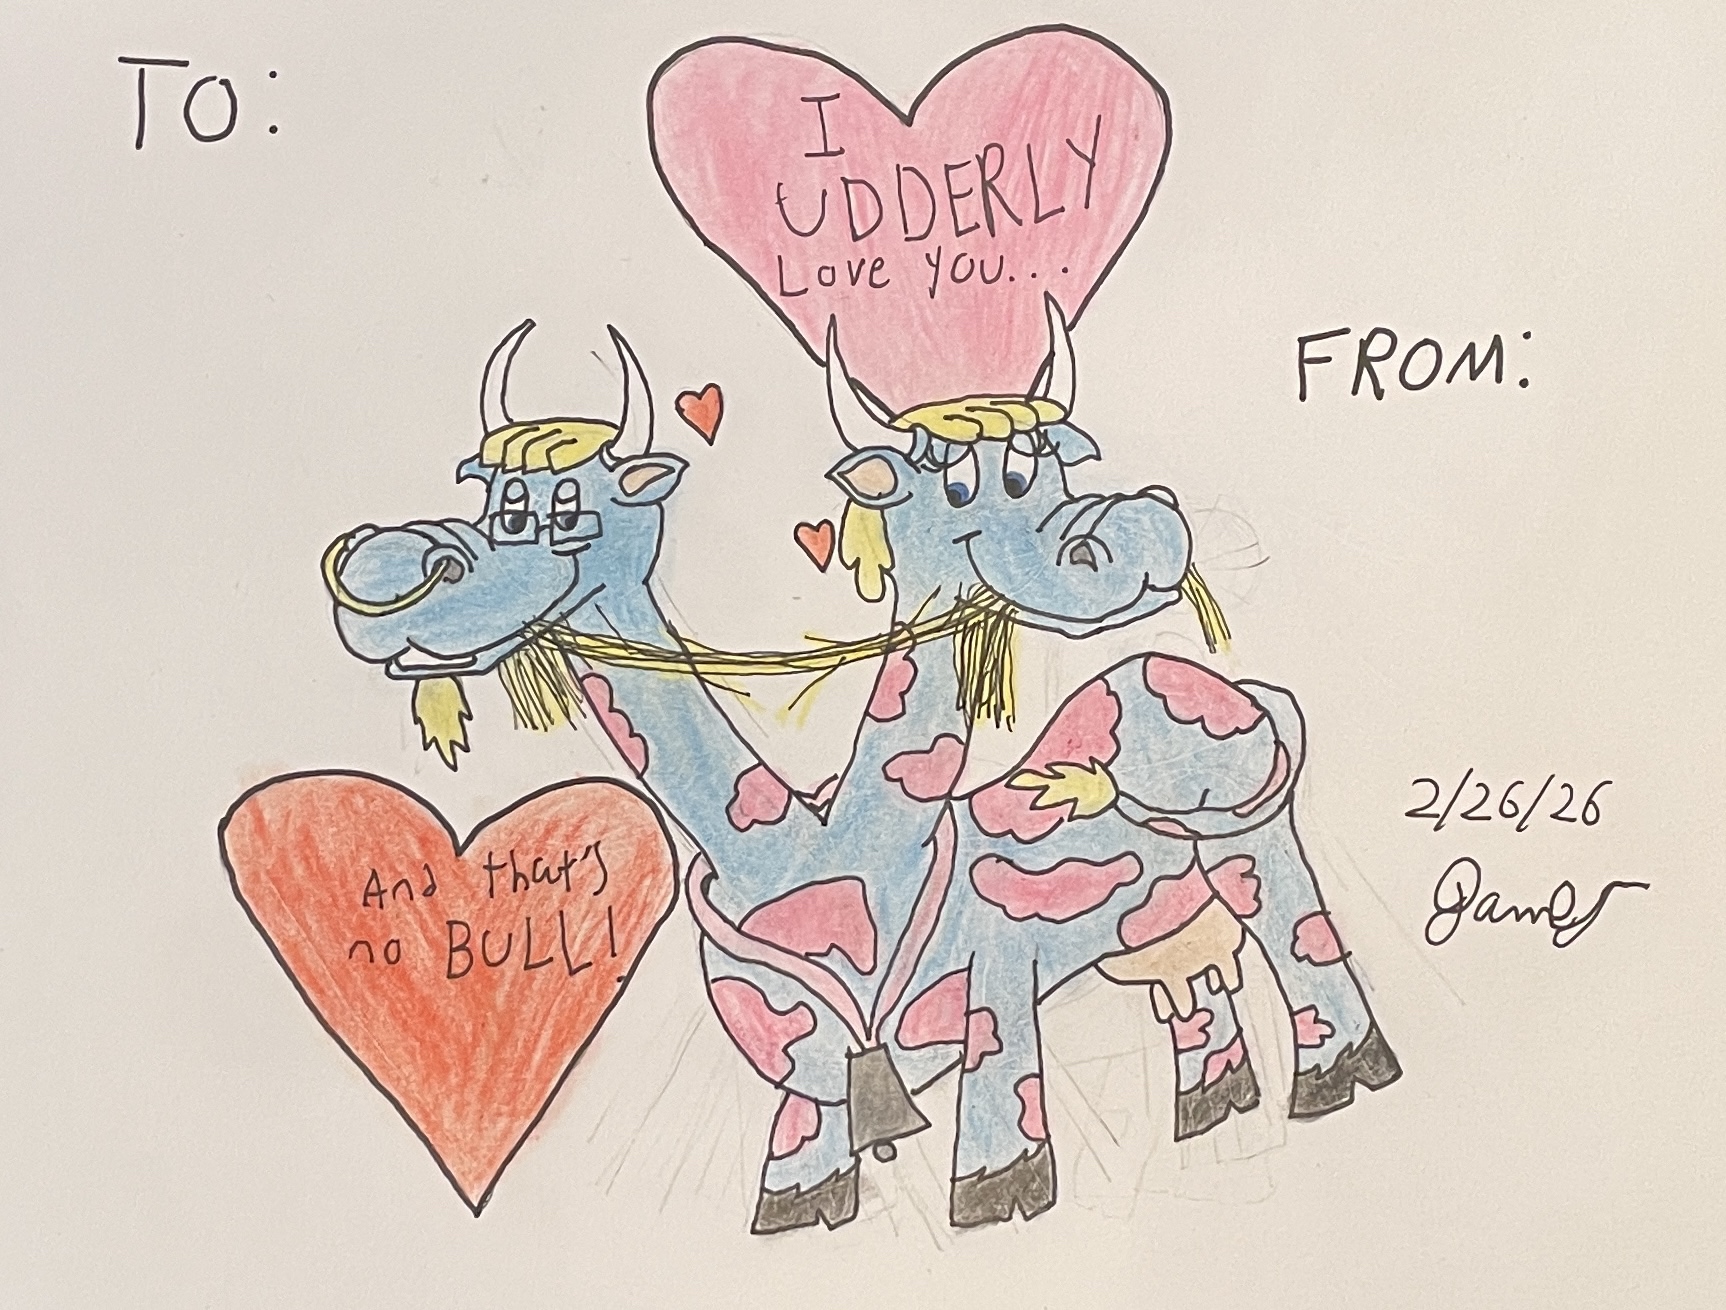 TO:
I
UDDERLY
Love you...
FROM:
And that's
no BULL!
2/26/26
James